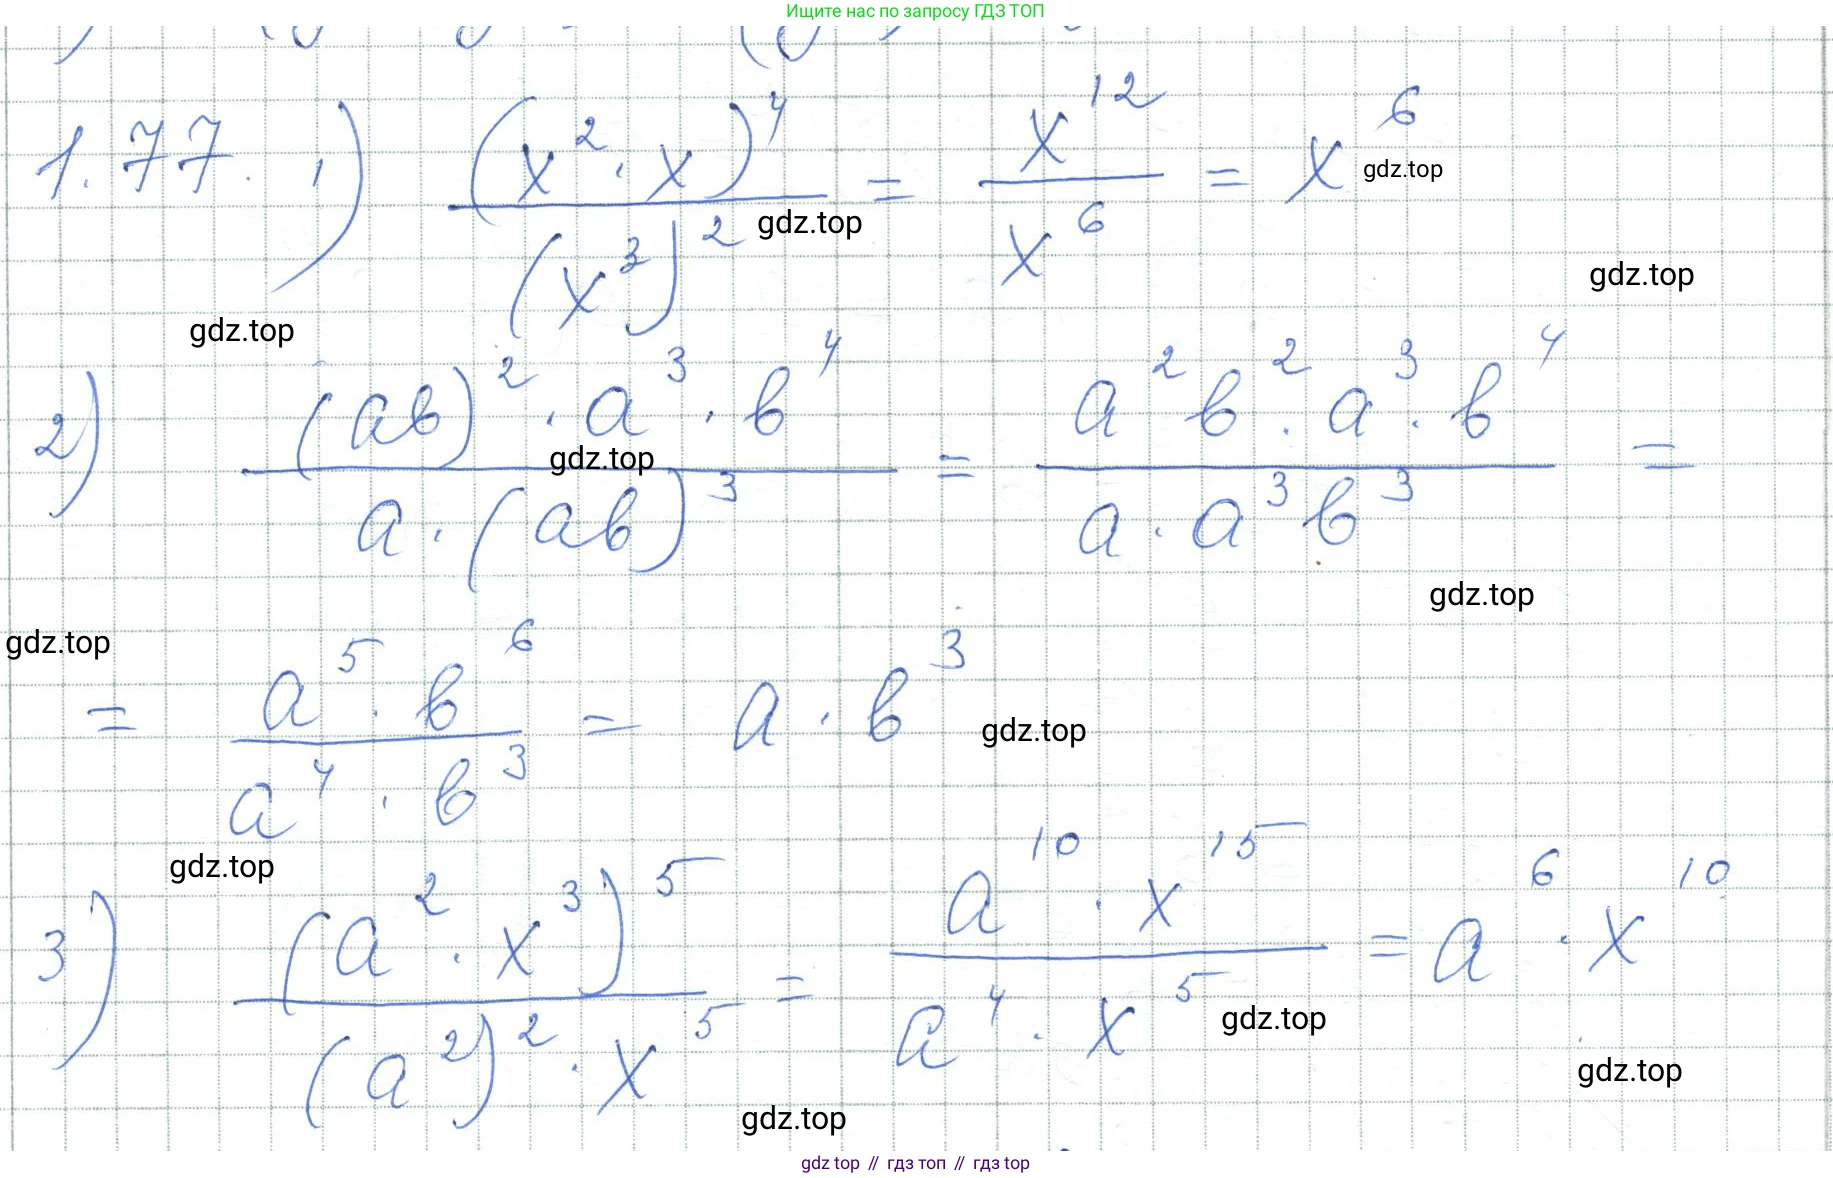 Ищите нас по запросу ГДЗ ТОП
1.77. 1) (x²·x)⁴ / (x³)² = x¹² / x⁶ = x⁶
gdz.top
gdz.top
gdz.top
gdz.top
2) (ab)²·a³·b⁴ / a·(ab)³ = a²b²·a³·b⁴ / a·a³b³ =
gdz.top
gdz.top
gdz.top
= a⁵·b⁶ / a⁴·b³ = a·b³
gdz.top
gdz.top
3) (a²·x³)⁵ / (a²)²·x⁵ = a¹⁰·x¹⁵ / a⁴·x⁵ = a⁶·x¹⁰
gdz.top
gdz.top
gdz.top
gdz top // гдз топ // gdz top